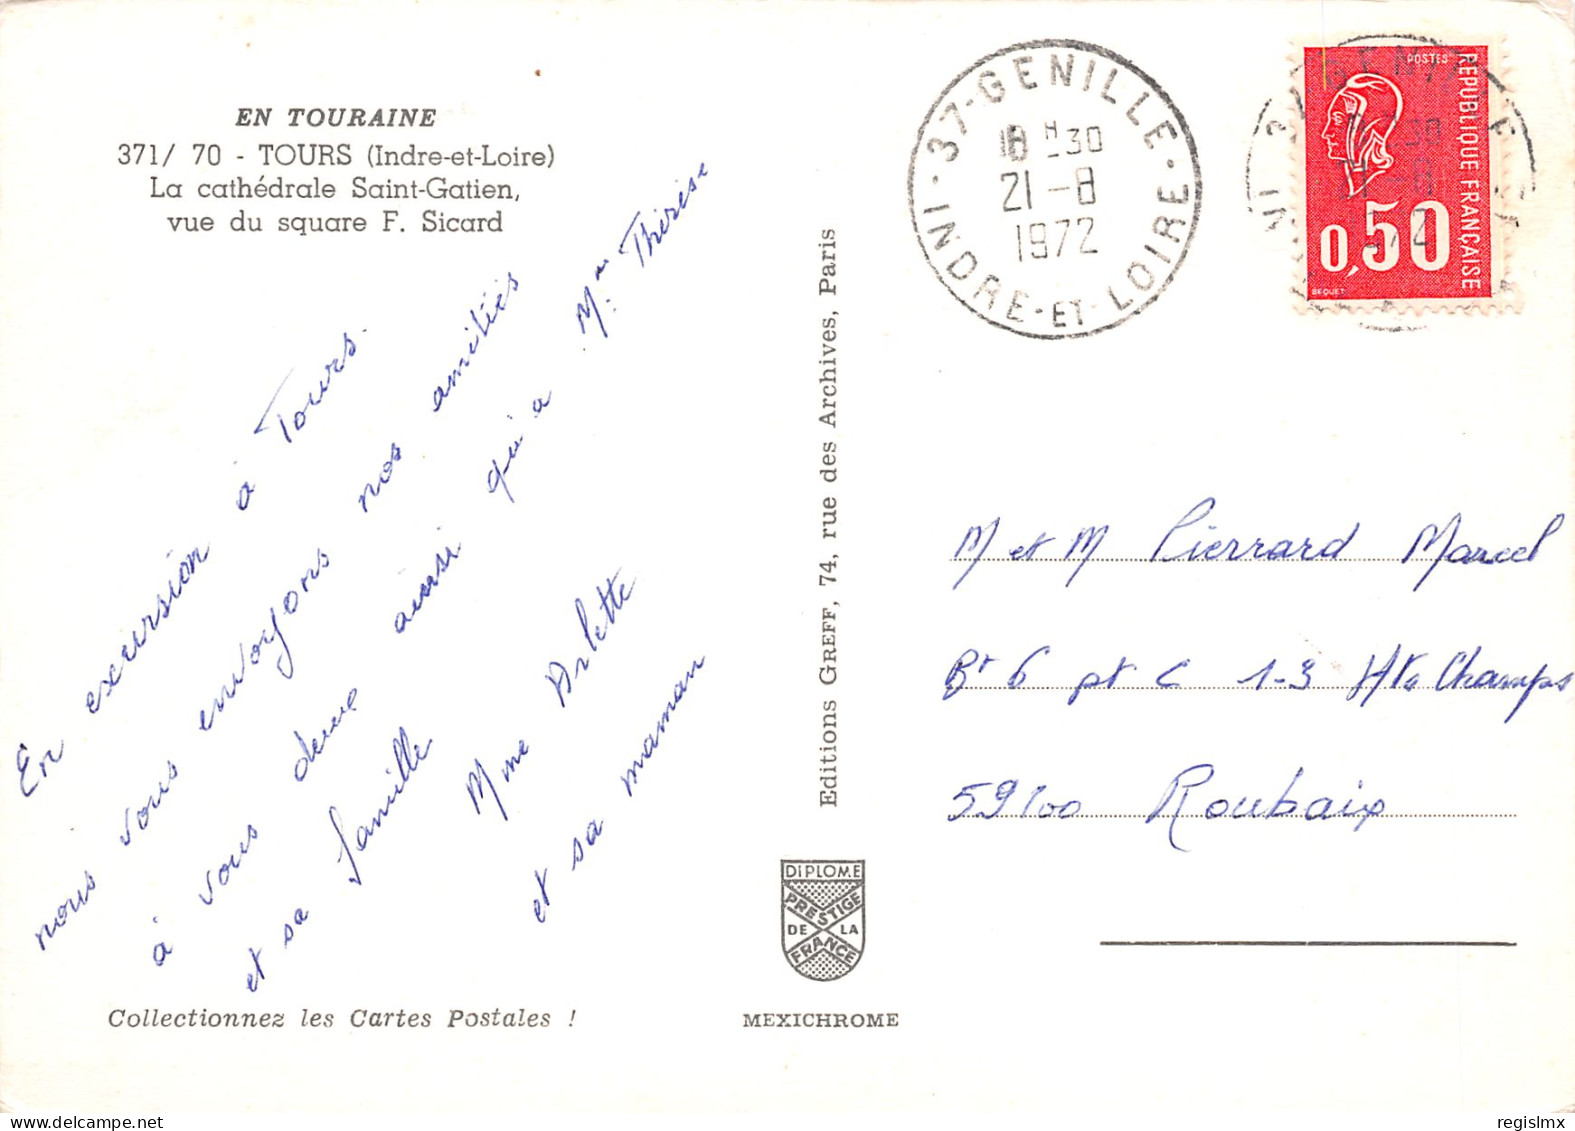 EN TOURAINE
371/ 70 - TOURS (Indre-et-Loire)
La cathédrale Saint-Gatien,
vue du square F. Sicard
En excursion à Tours.
nous vous envoyons nos amitiés
à vous deux ainsi qu'a Mme Thérèse
et sa famille
Mme Arlette
et sa maman
Collectionnez les Cartes Postales !
Editions GREFF, 74, rue des Archives, Paris
DIPLOME
PRESTIGE
DE LA
FRANCE
MEXICHROME
37-GENILLE
18 H 30
21-8
1972
INDRE-ET-LOIRE
POSTES
REPUBLIQUE FRANÇAISE
0,50
BEQUET
M et M Pierrard Marcel
Bt 6 pt C 1-3 Hts Champs
59100 Roubaix
regislmx